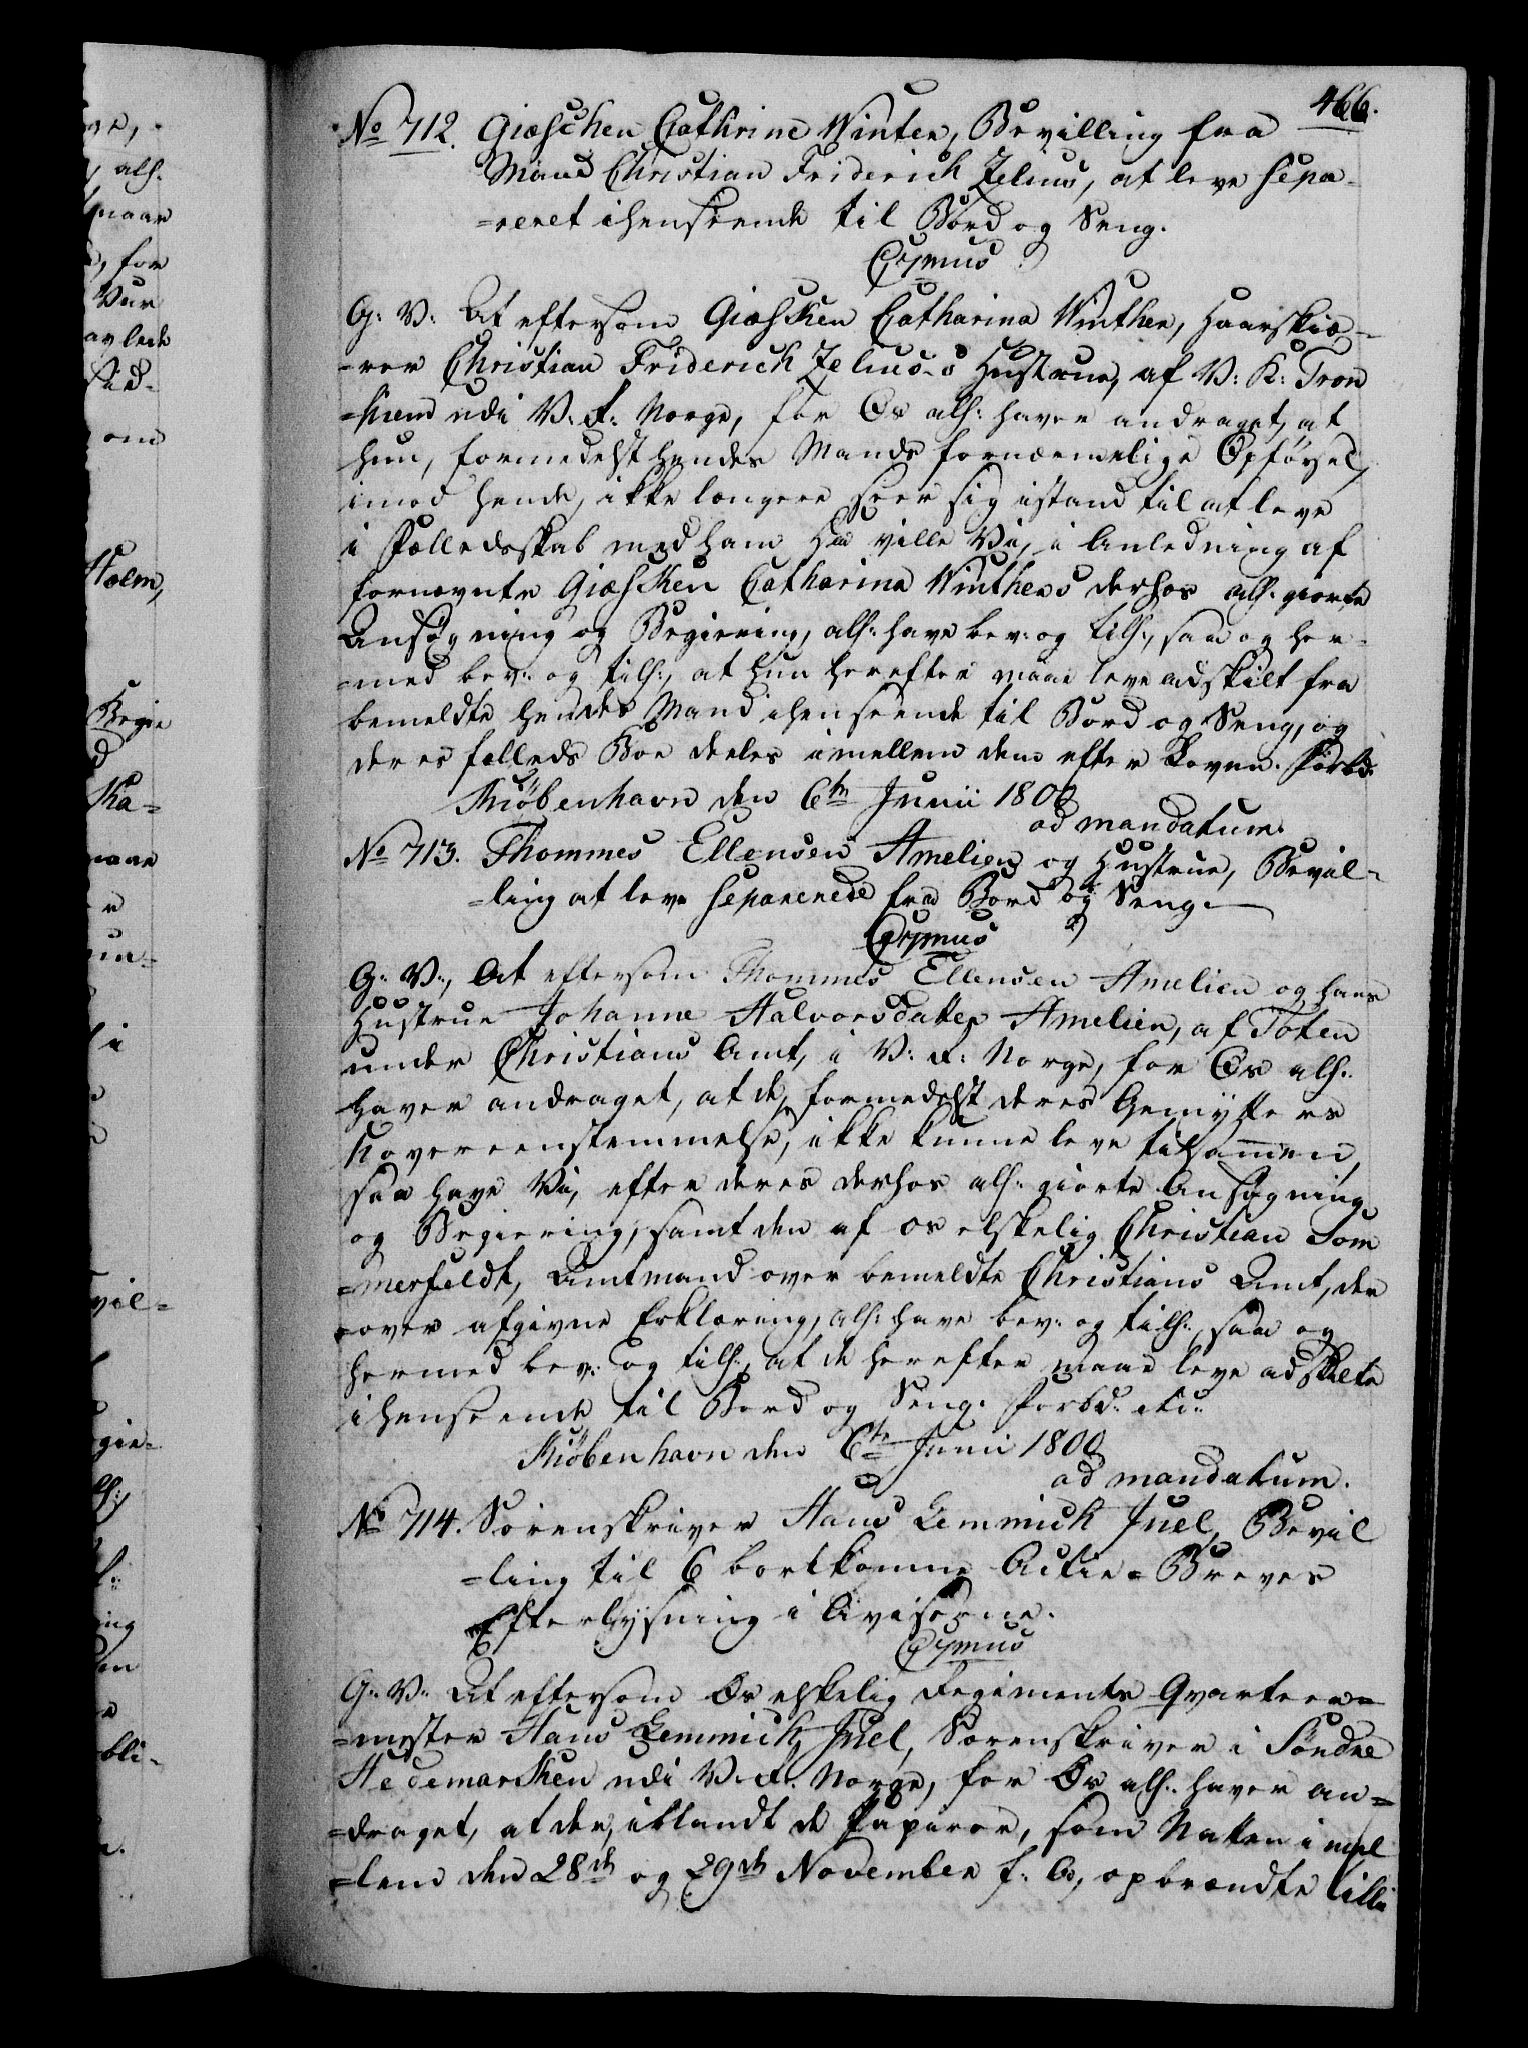 466.
No 712. Giæschen Cathrine Winter, Bevilling fra
Mand Christian Friderich Zelius, at leve sepa-
=reret ihenseende til Bord og Seng.
C7mus
G: V: At eftersom Giæschen Catharina Winther, Haarskiæ-
-rer Christian Friderich Zelius-s Hustrue, af V: K: Tron
=hiem udi V: R: Norge, for Os alh: haver andraget, at
hun, formedelst hendes Mands fornærmelige Opførsel,
imod hende, ikke længere seer sig istand til at leve
i Fælledsskab med ham Saa ville Vi, i Anledning af
fornævnte Giæschen Catharina Winthers derhos alh: giorte
Ansøgning og Begiering, alh: have bev: og tilh:, saa og her-
=med bev: og tilh:, at hun herefter maae leve adskilt fra
bemeldte hendes Mand ihenseende til Bord og Seng, og
deres fælleds Boe deeles imellem dem efter Loven. Forbd:
Kiøbenhavn den 6te Junii 1800
ad mandatum.
No 713. Thommes Ellensen Amelien og Hustrue, Bevil-
=ling at leve separerede fra Bord og Seng.
C7mus
G: V:, At eftersom Thommes Ellensen Amelien og hans
Hustrue Johanne Halvorsdatter Amelien, af Toten
under Christians Amt, i V: R: Norge, for Os alh:
haver andraget, at de, formedelst deres Gemytters
Uovereenstemmelse, ikke kunne leve tilsammen,
saa have Vi, efter deres derhos alh: giorte Ansøgning
og Begiering, samt den af os elskelig Christian Som
=merfeldt, Amtmand over bemeldte Christians Amt, der
=over afgivne Erklæring, alh: have bev: og tilh:, saa og
hermed bev: og tilh:, at de herefter maae leve adskilte
ihenseende til Bord og Seng. Forbd: etc:
Kiøbenhavn den 6te Junii 1800
ad mandatum.
No 714. Sorenskriver Hans Lemmich Juel, Bevil
=ling til 6 bortkomne Actie=Breves
Efterlysning i Aviserne.
C7mus
G: V: At eftersom Os elskelig Regiments Qvarteer=
=mester Hans Lemmich Juel, Sorenskriver i Søndre
Hedemarken udi V: R: Norge, for Os alh: haver an=
=draget, at der, iblandt de Papirer, som Natten imel
=lem den 28de og 29de November f: A:, opbrændte tilli